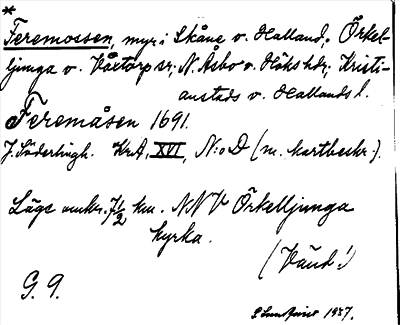 *
Feremossen, myr i Skåne o. Halland, Örkel-
ljunga o. Våxtorp sr; N. Åsbo o. Höks hdr; Kristi-
anstads o. Hallands l.
Feremåsen 1691.
J. Söderlingh. KrA, XVI, N:o D (m. kartbeskr.).
Läge omkr. 7½ km. NNV Örkelljunga
kyrka.
(Vänd!)
G. 9.
1937.